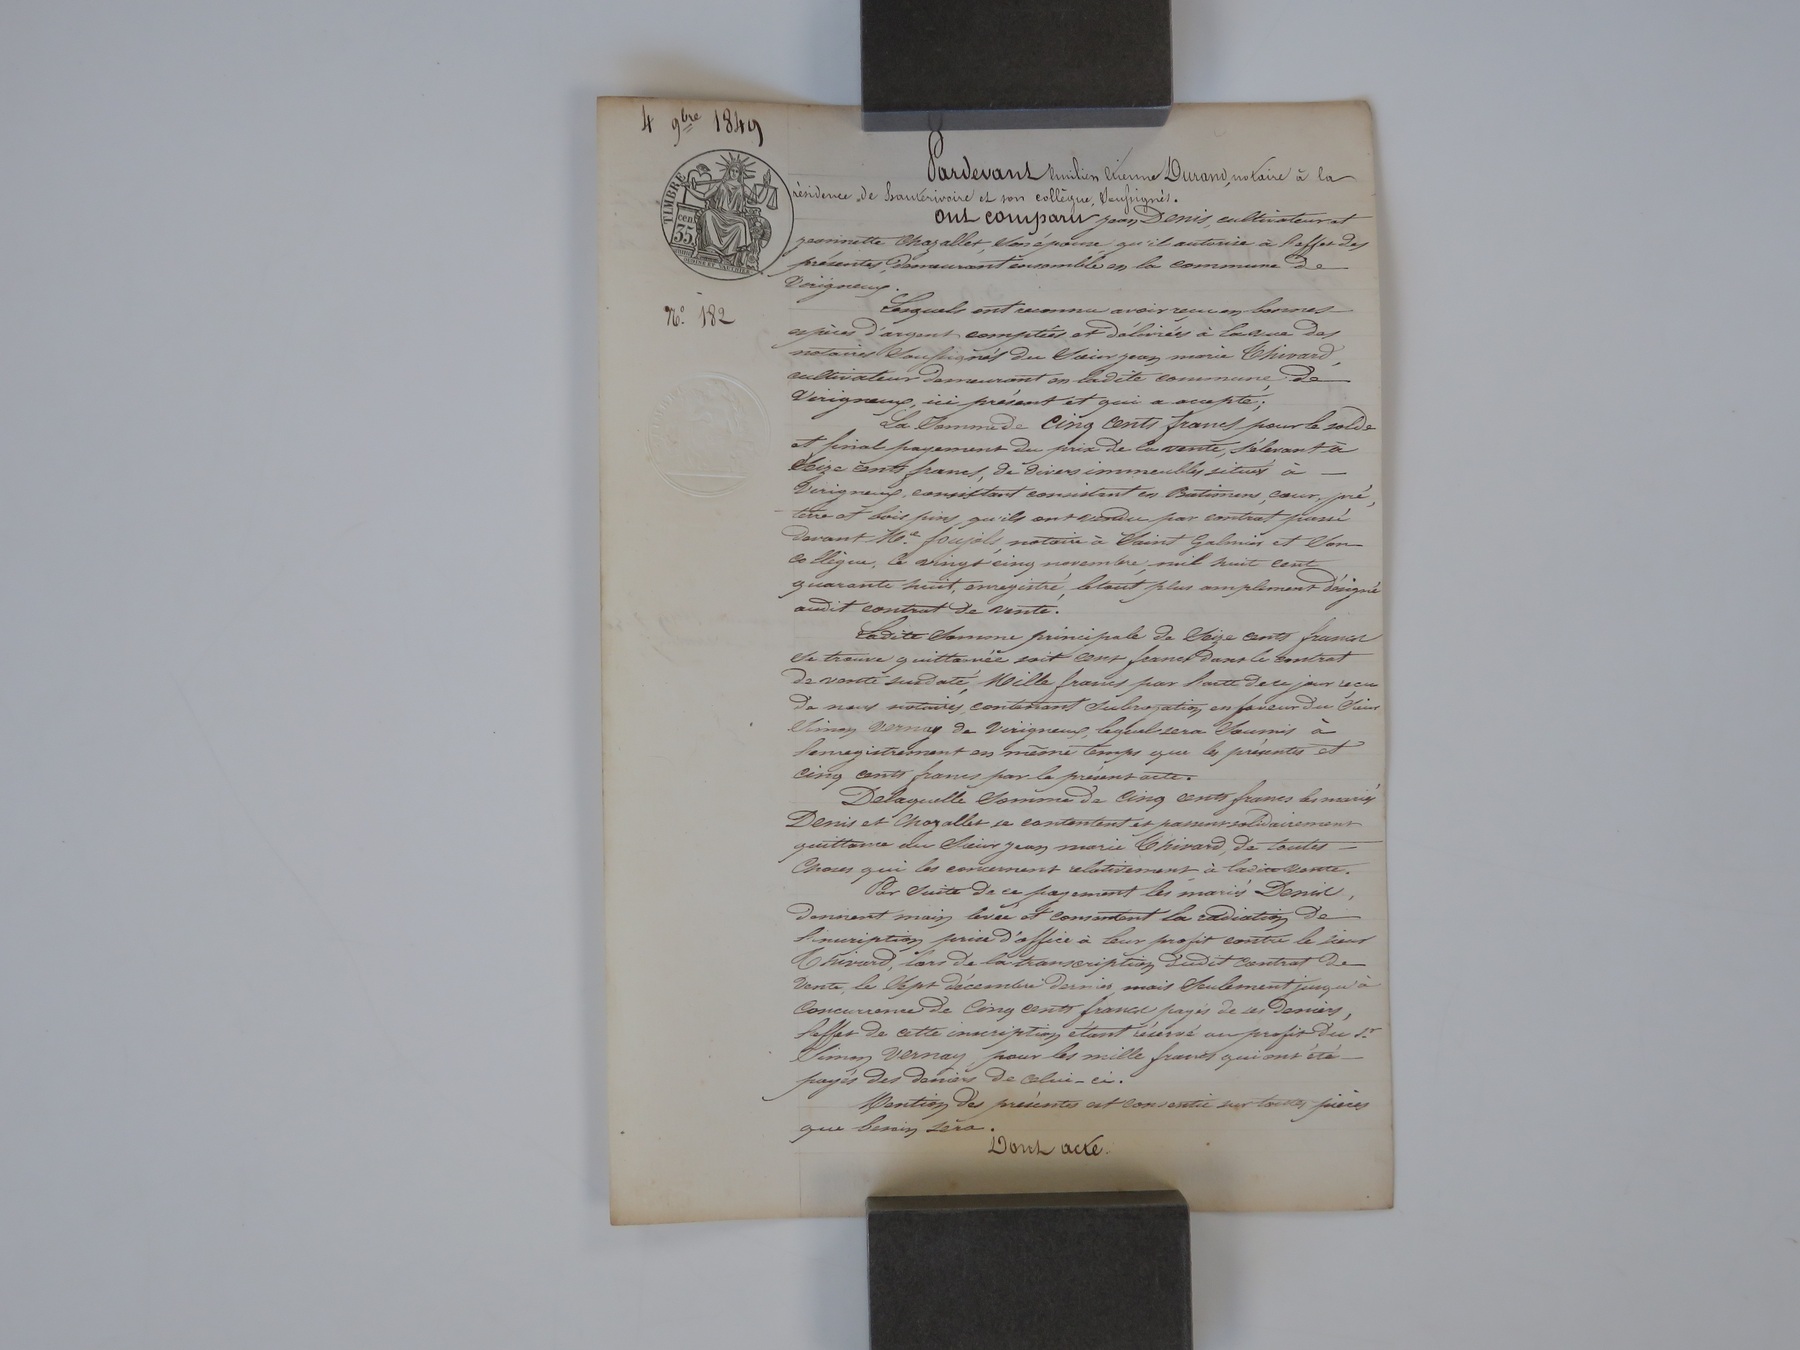 4 9bre 1849
TIMBRE
cen
35
No 182
Pardevant Emilien Etienne Durand, notaire à la
résidence de hauterivoire et son collègue, Soussignés.
Ont comparu jean Denis, cultivateur et
jeannette Chazallet, Son épouse, qu'il autorise à l'effet des
présentes, demeurant ensemble en la commune de
Virigneux.
Lesquels ont reconnu avoir reçu en bonnes
espèces d'argent comptées et délivrées à la vue des
notaires Soussignés du Sieur jean marie Thivard,
cultivateur demeurant en ladite commune de
Virigneux, ici présent et qui a accepté;
La Somme de Cinq Cents francs pour le solde
et final payement du prix de la vente, S'élevant à
Seize cents francs, de divers immeubles situés à
Virigneux, consistant consistant en Batimens, cour, pré,
terre et bois pins, qu'ils ont vendu par contrat passé
devant Me foujols, notaire à Saint Galmier et Son
collègue, le vingt cinq novembre mil huit cent
quarante huit, enregistré, le tout plus amplement désigné
audit contrat de vente.
Ladite Somme principale de Seize cents francs
Se trouve quittancée soit cent francs dans le contrat
de vente susdaté, Mille francs par l'acte de ce jour reçu
de nous notaires, contenant Subrogation en faveur du Sieur
Simon Vernay de Virigneux, lequel sera Soumis à
l'enregistrement en même temps que les présentes et
cinq cents francs par le présent acte.
De laquelle Somme de Cinq cents francs les mariés
Denis et Chazallet se contentent et passent solidairement
quittance au Sieur jean marie Thivard, de toutes
Choses qui les concernent relativement à ladite vente.
Par Suite de ce payement les mariés Denis,
donnent main levée et consentent la radiation de
l'inscription prise d'office à leur profit contre le sieur
Thivard, lors de la transcription dudit contrat de
vente, le Sept décembre dernier, mais Seulement jusqu'à
Concurrence de Cinq cents francs payés de ses deniers,
l'effet de cette inscription étant réservé au profit du Sr
Simon Vernay, pour les mille francs qui ont été
payés des deniers de celui-ci.
Mention des présentes est consentie sur toutes pièces
que besoin sera.
Dont acte.